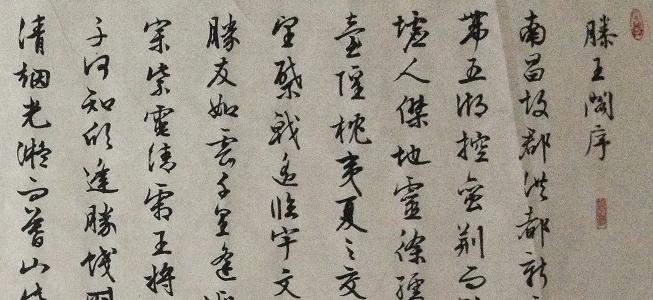 滕王閣序
南昌故郡洪都新
帶五湖控蛮荆而
墟人傑地靈徐孺
臺隍枕夷夏之交
里棨戟遙臨宇文
勝友如雲千里逢
宗紫電清霜王將
子何知躬逢勝餞
清烟光凝而暮山